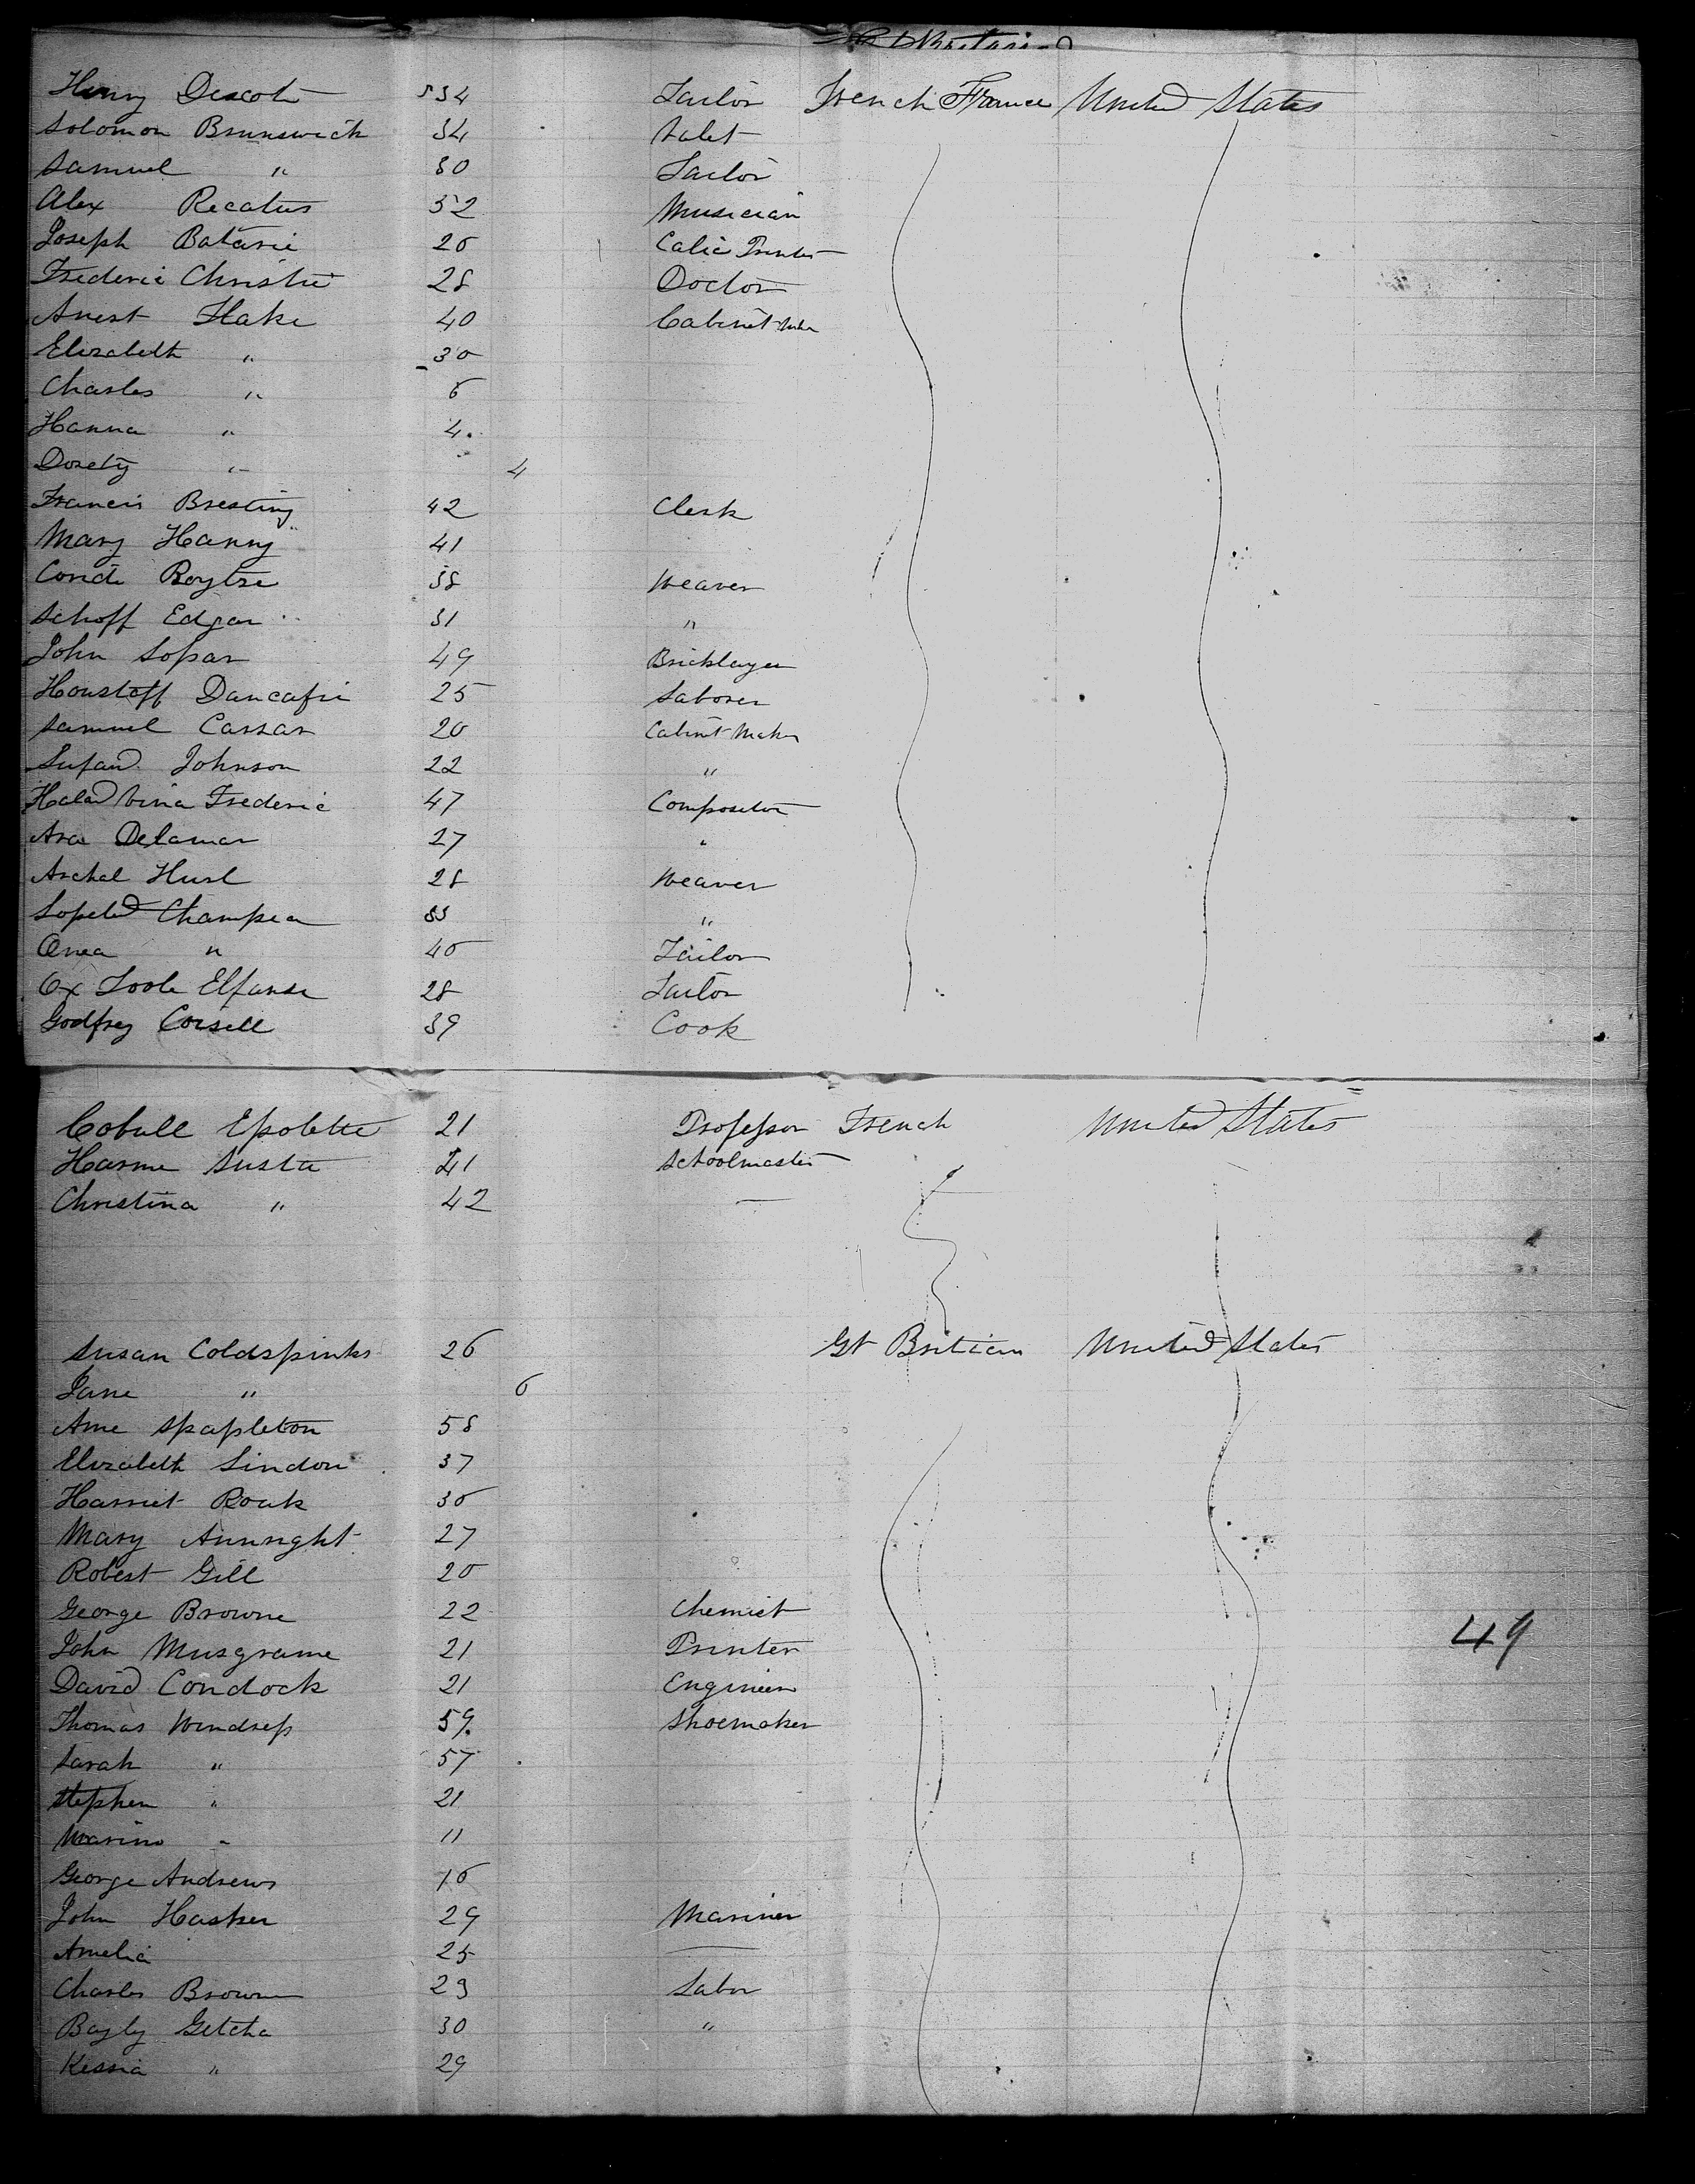 Henry Descot 34 Tailor French France United States
Solomon Brunswick 34 Valet
Samuel " 30 Tailor
Alex Recatus 32 Musician
Joseph Batarie 20 Calic Printer
Frederic Christie 28 Doctor
Anest Hake 40 Cabinet
Elizabeth " 30
Charles " 6
Hanna " 4
Dorety " 4
Francis Bresting 42 Clerk
Mary Hanny 41
Conde Roytre 38 Weaver
Schoff Edgar 31 "
John Sopar 49 Bricklayer
Houstoff Dancafie 25 Laborer
Samuel Cassar 20 Cabinet Maker
Johnson 22 "
Frederic 47 Compositor
Delamar 27 "
Aschal Husl 28 Weaver
Champea 33 "
Onea " 40 Tailor
Elfanse 28 Tailor
Godfrey Corsell 39 Cook
Cobull Epolette 21 Professor French United States
Harme Susta 41 Schoolmaster
Christina " 42
Susan Coldspinks 26 Gt Britian United States
Jane " 6
Ame Stapleton 58
Elizabeth Lindon 37
Harriet Roak 30
Mary Annright 27
Robert Gill 20
George Browne 22 Chemist
49
John Musgrame 21 Printer
David Condock 21 Engineer
Thomas Windress 59 Shoemaker
Sarah " 57
Stephen " 21
Marino " 11
George Andrews 16
John Hasker 29 Mariner
Amelia 25
Charles Brown 23 Labor
Bayly Getcha 30 "
Kessia " 29